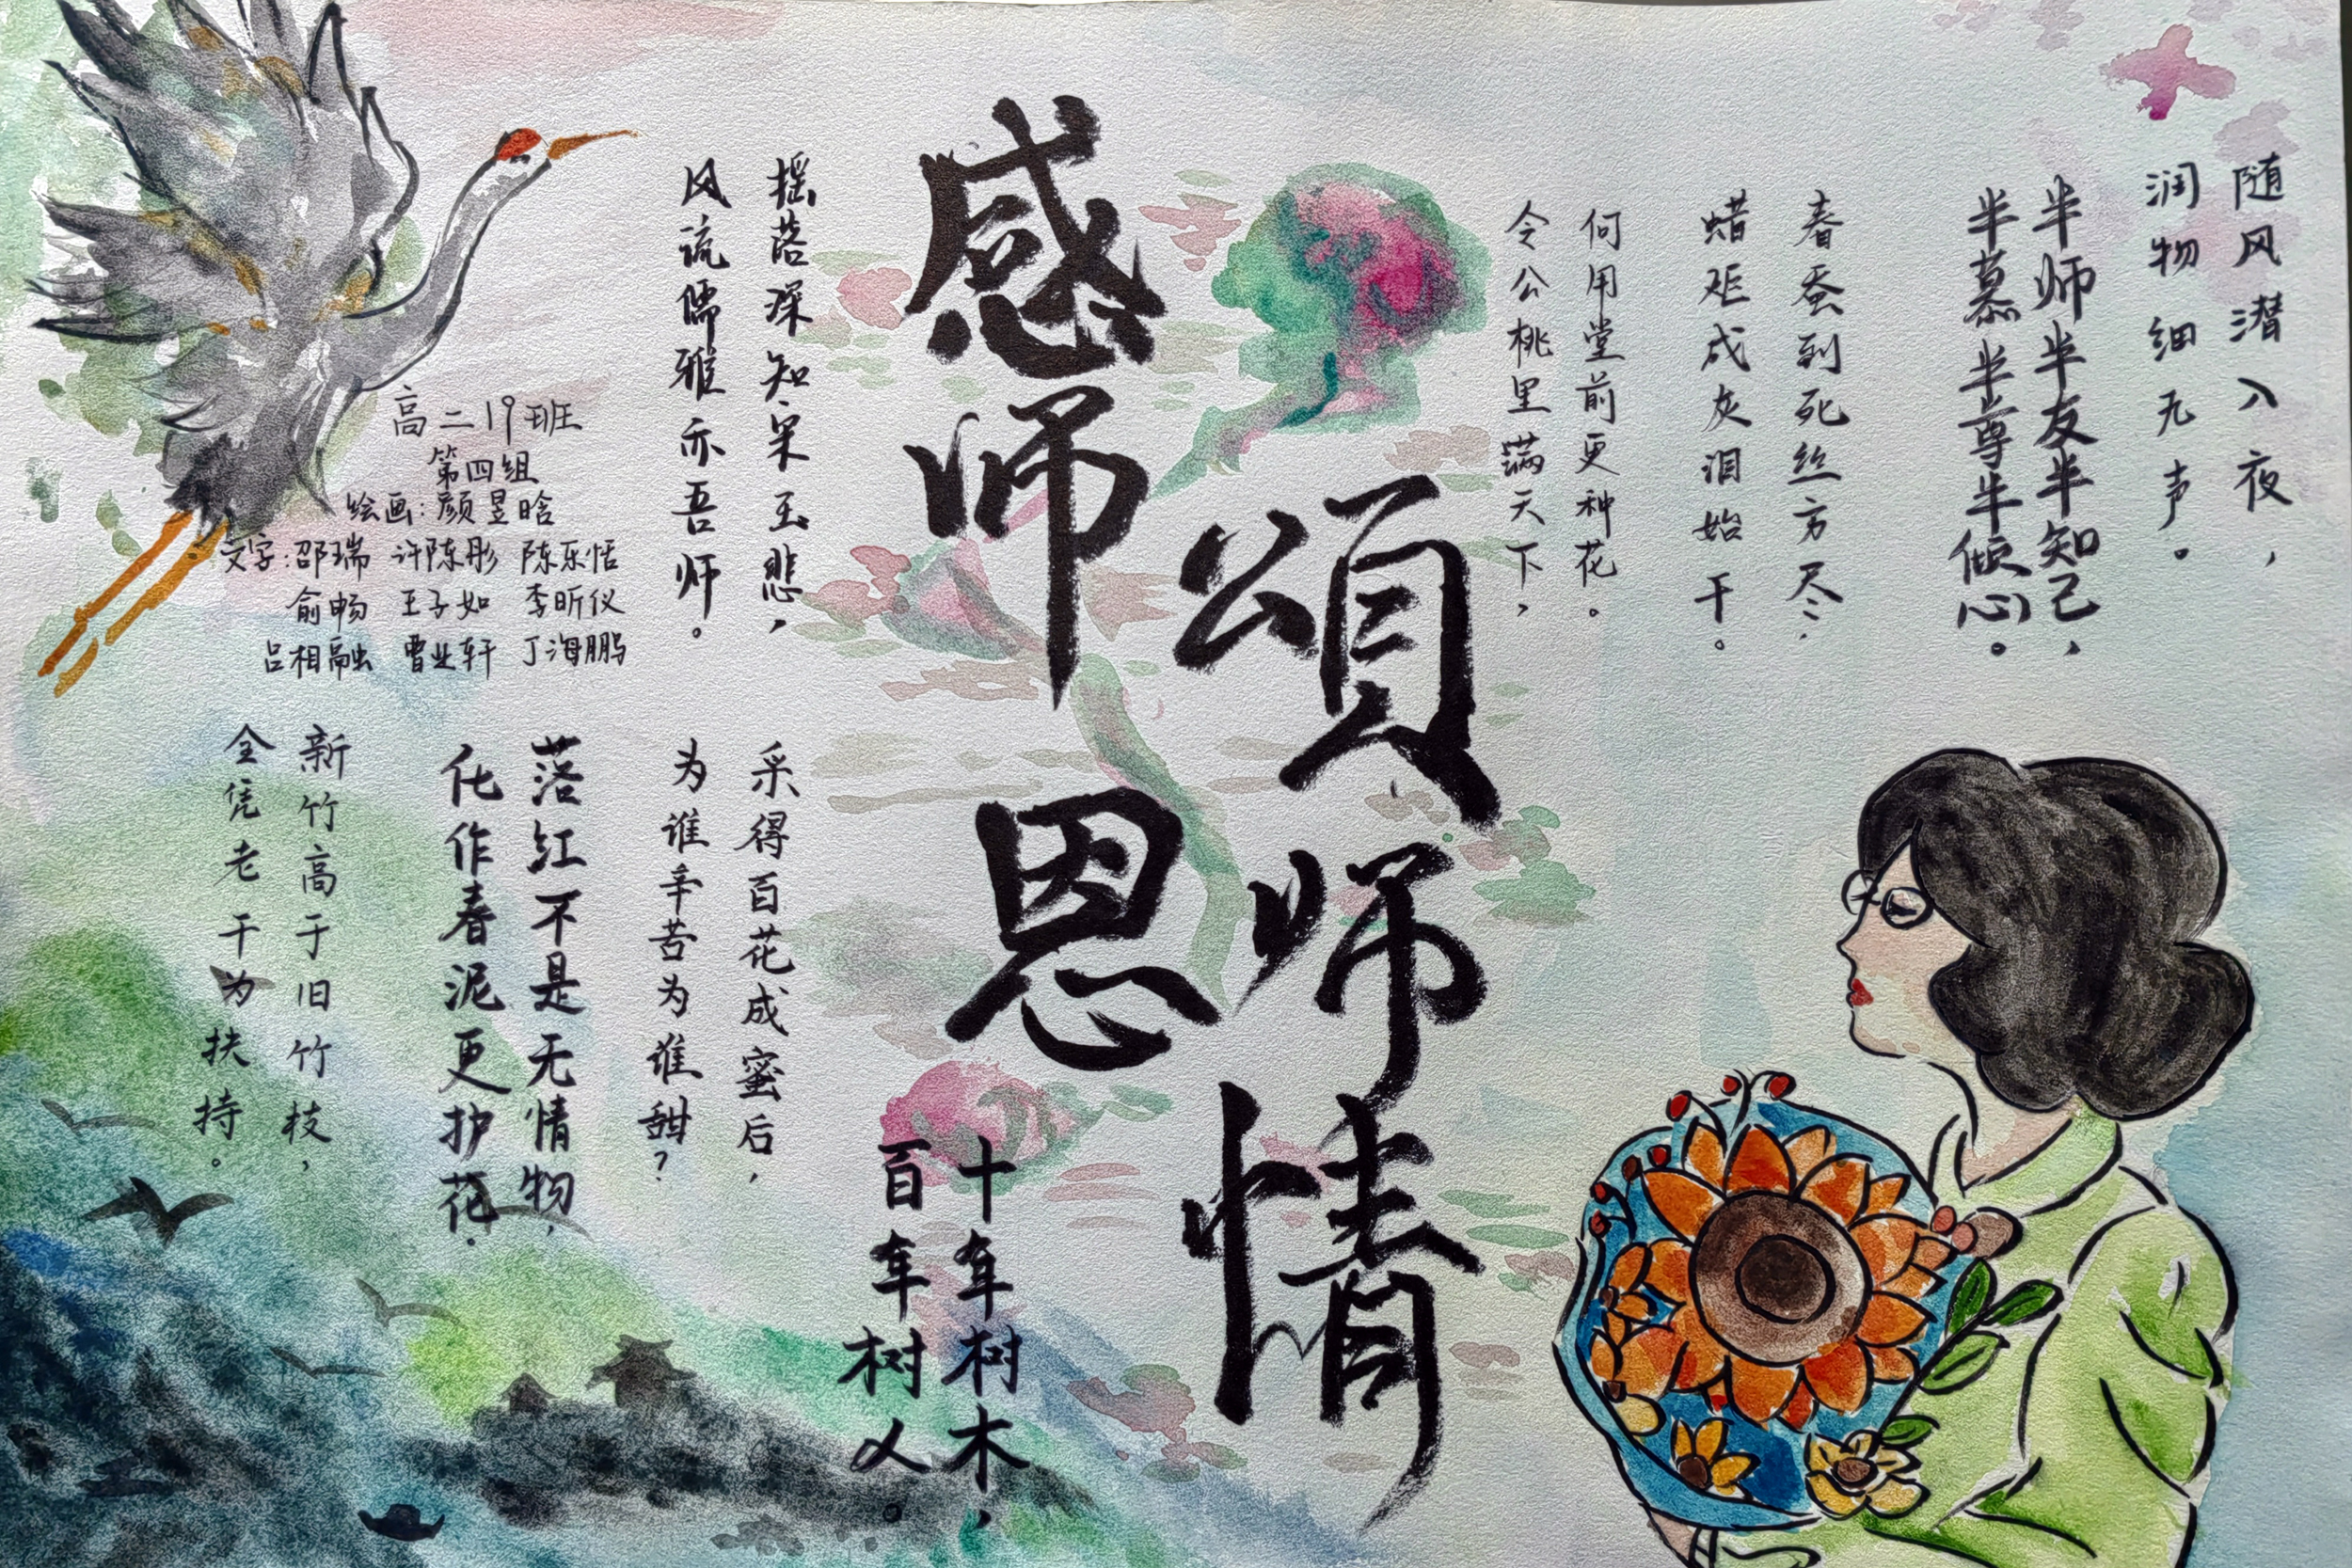 随风潜入夜，
润物细无声。
半师半友半知己，
半慕半尊半倾心。
春蚕到死丝方尽，
蜡炬成灰泪始干。
何用堂前更种花。
令公桃里满天下，
感师恩
頌师情
摇落深知宋玉悲，
风流儒雅亦吾师。
高二19班
第四组
绘画：颜昱晗
文字：邵瑞 许陈彤 陈乐恬
俞畅 王子如 李昕仪
吕相融 曹业轩 丁海鹏
十年树木，
百年树人。
采得百花成蜜后，
为谁辛苦为谁甜？
落红不是无情物，
化作春泥更护花。
新竹高于旧竹枝，
全凭老干为扶持。